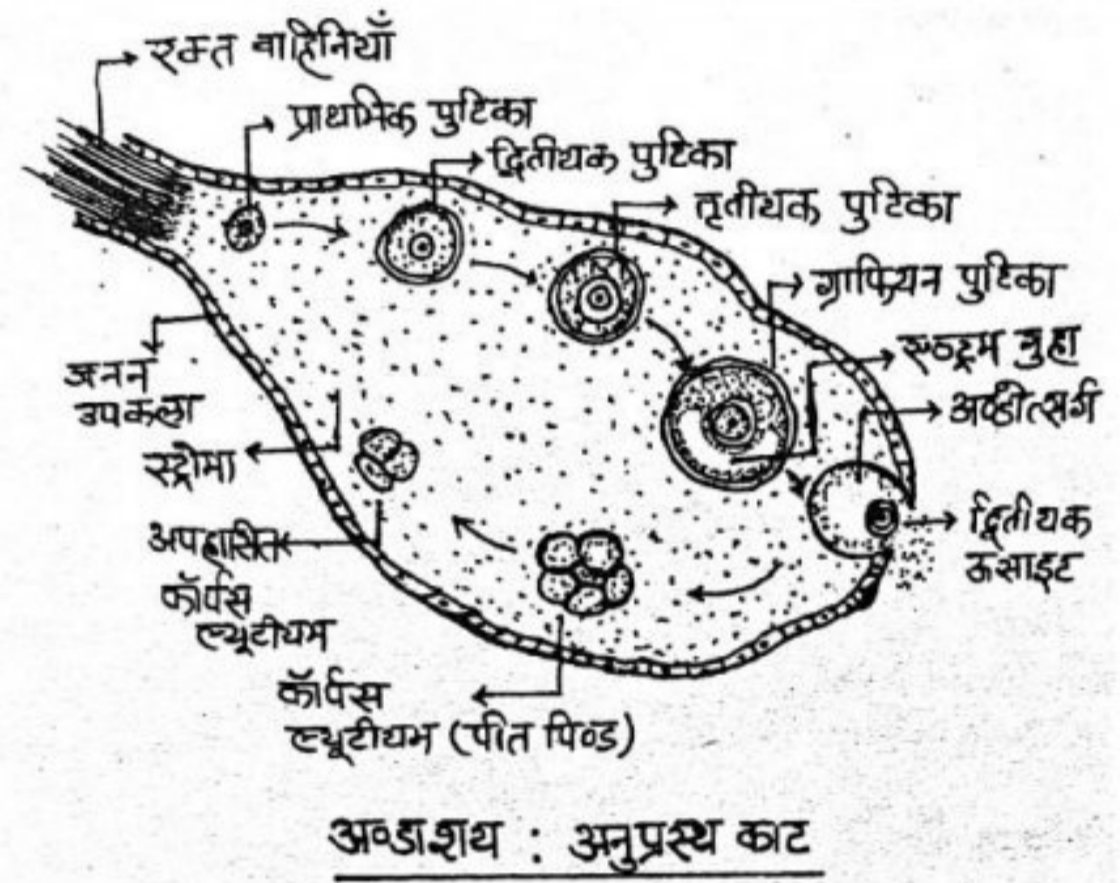 रक्त वाहिनियाँ
प्राथमिक पुटिका
द्वितीयक पुटिका
तृतीयक पुटिका
ग्राफियन पुटिका
एन्ट्रम गुहा
अण्डोत्सर्ग
द्वितीयक
ऊसाइट
जनन
उपकला
स्ट्रोमा
अपह्रासित
कॉर्पस
ल्यूटीयम
कॉर्पस
ल्यूटीयम (पीत पिण्ड)
अण्डाशय : अनुप्रस्थ काट